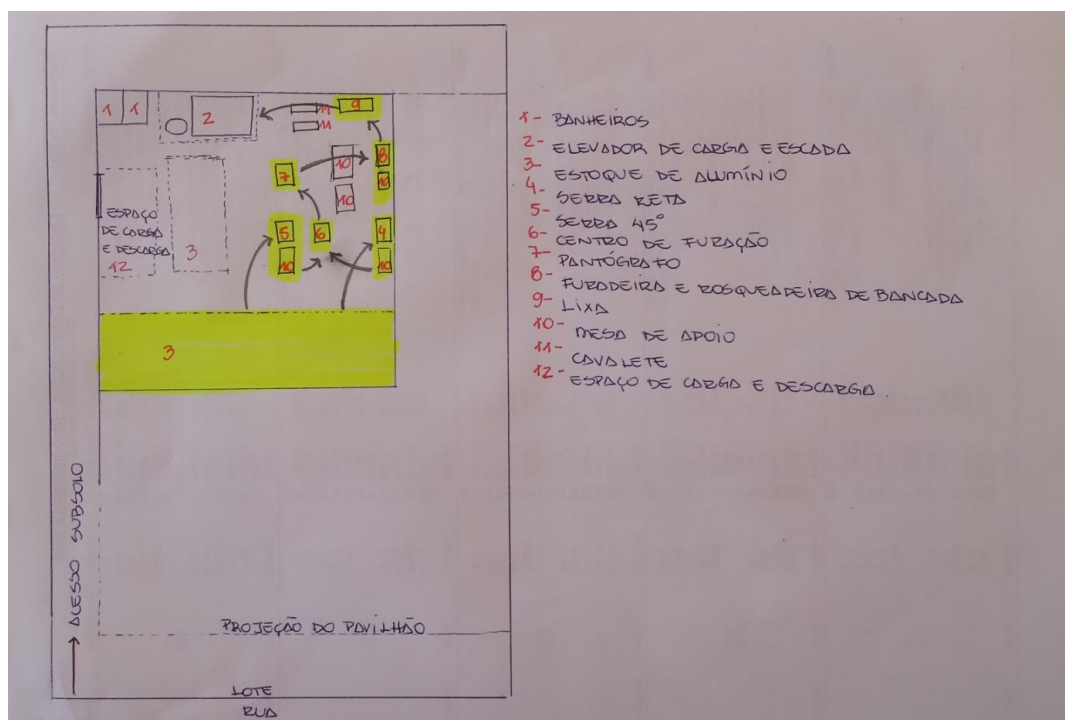 1 1
2
11
11
9
8
10
10
10
7
ESPAÇO
DE CARGA
E DESCARGA
12
3
5
6
4
10
10
3
ACESSO SUBSOLO
PROJEÇÃO DO PAVILHÃO
LOTE
RUA
1- BANHEIROS
2- ELEVADOR DE CARGA E ESCADA
3- ESTOQUE DE ALUMÍNIO
4- SERRA RETA
5- SERRA 45°
6- CENTRO DE FURAÇÃO
7- PANTÓGRAFO
8- FURADEIRA E ROSQUEADEIRA DE BANCADA
9- LIXA
10- MESA DE APOIO
11- CAVALETE
12- ESPAÇO DE CARGA E DESCARGA.